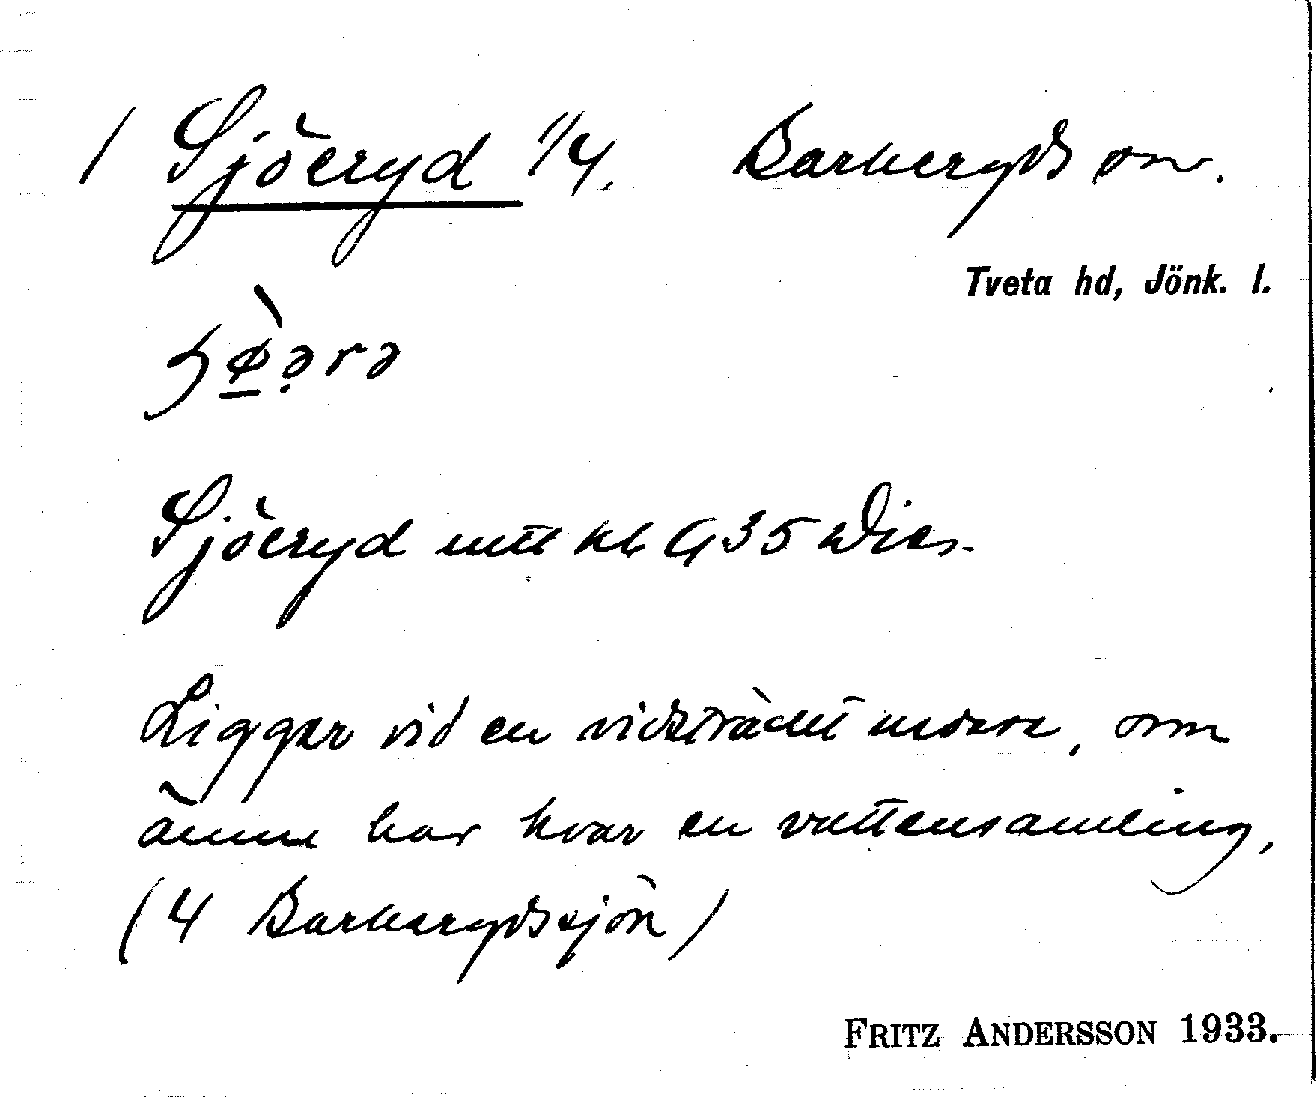 1 Sjöeryd 1/4. Barkeryds sn.
Tveta hd, Jönk. l.
Sjöeryd mtl kb G35 Dics.
Ligger vid en vidsträckt mosse, som
ännu har kvar en vattensamling,
(4 Barkerydssjön)
FRITZ ANDERSSON 1933.